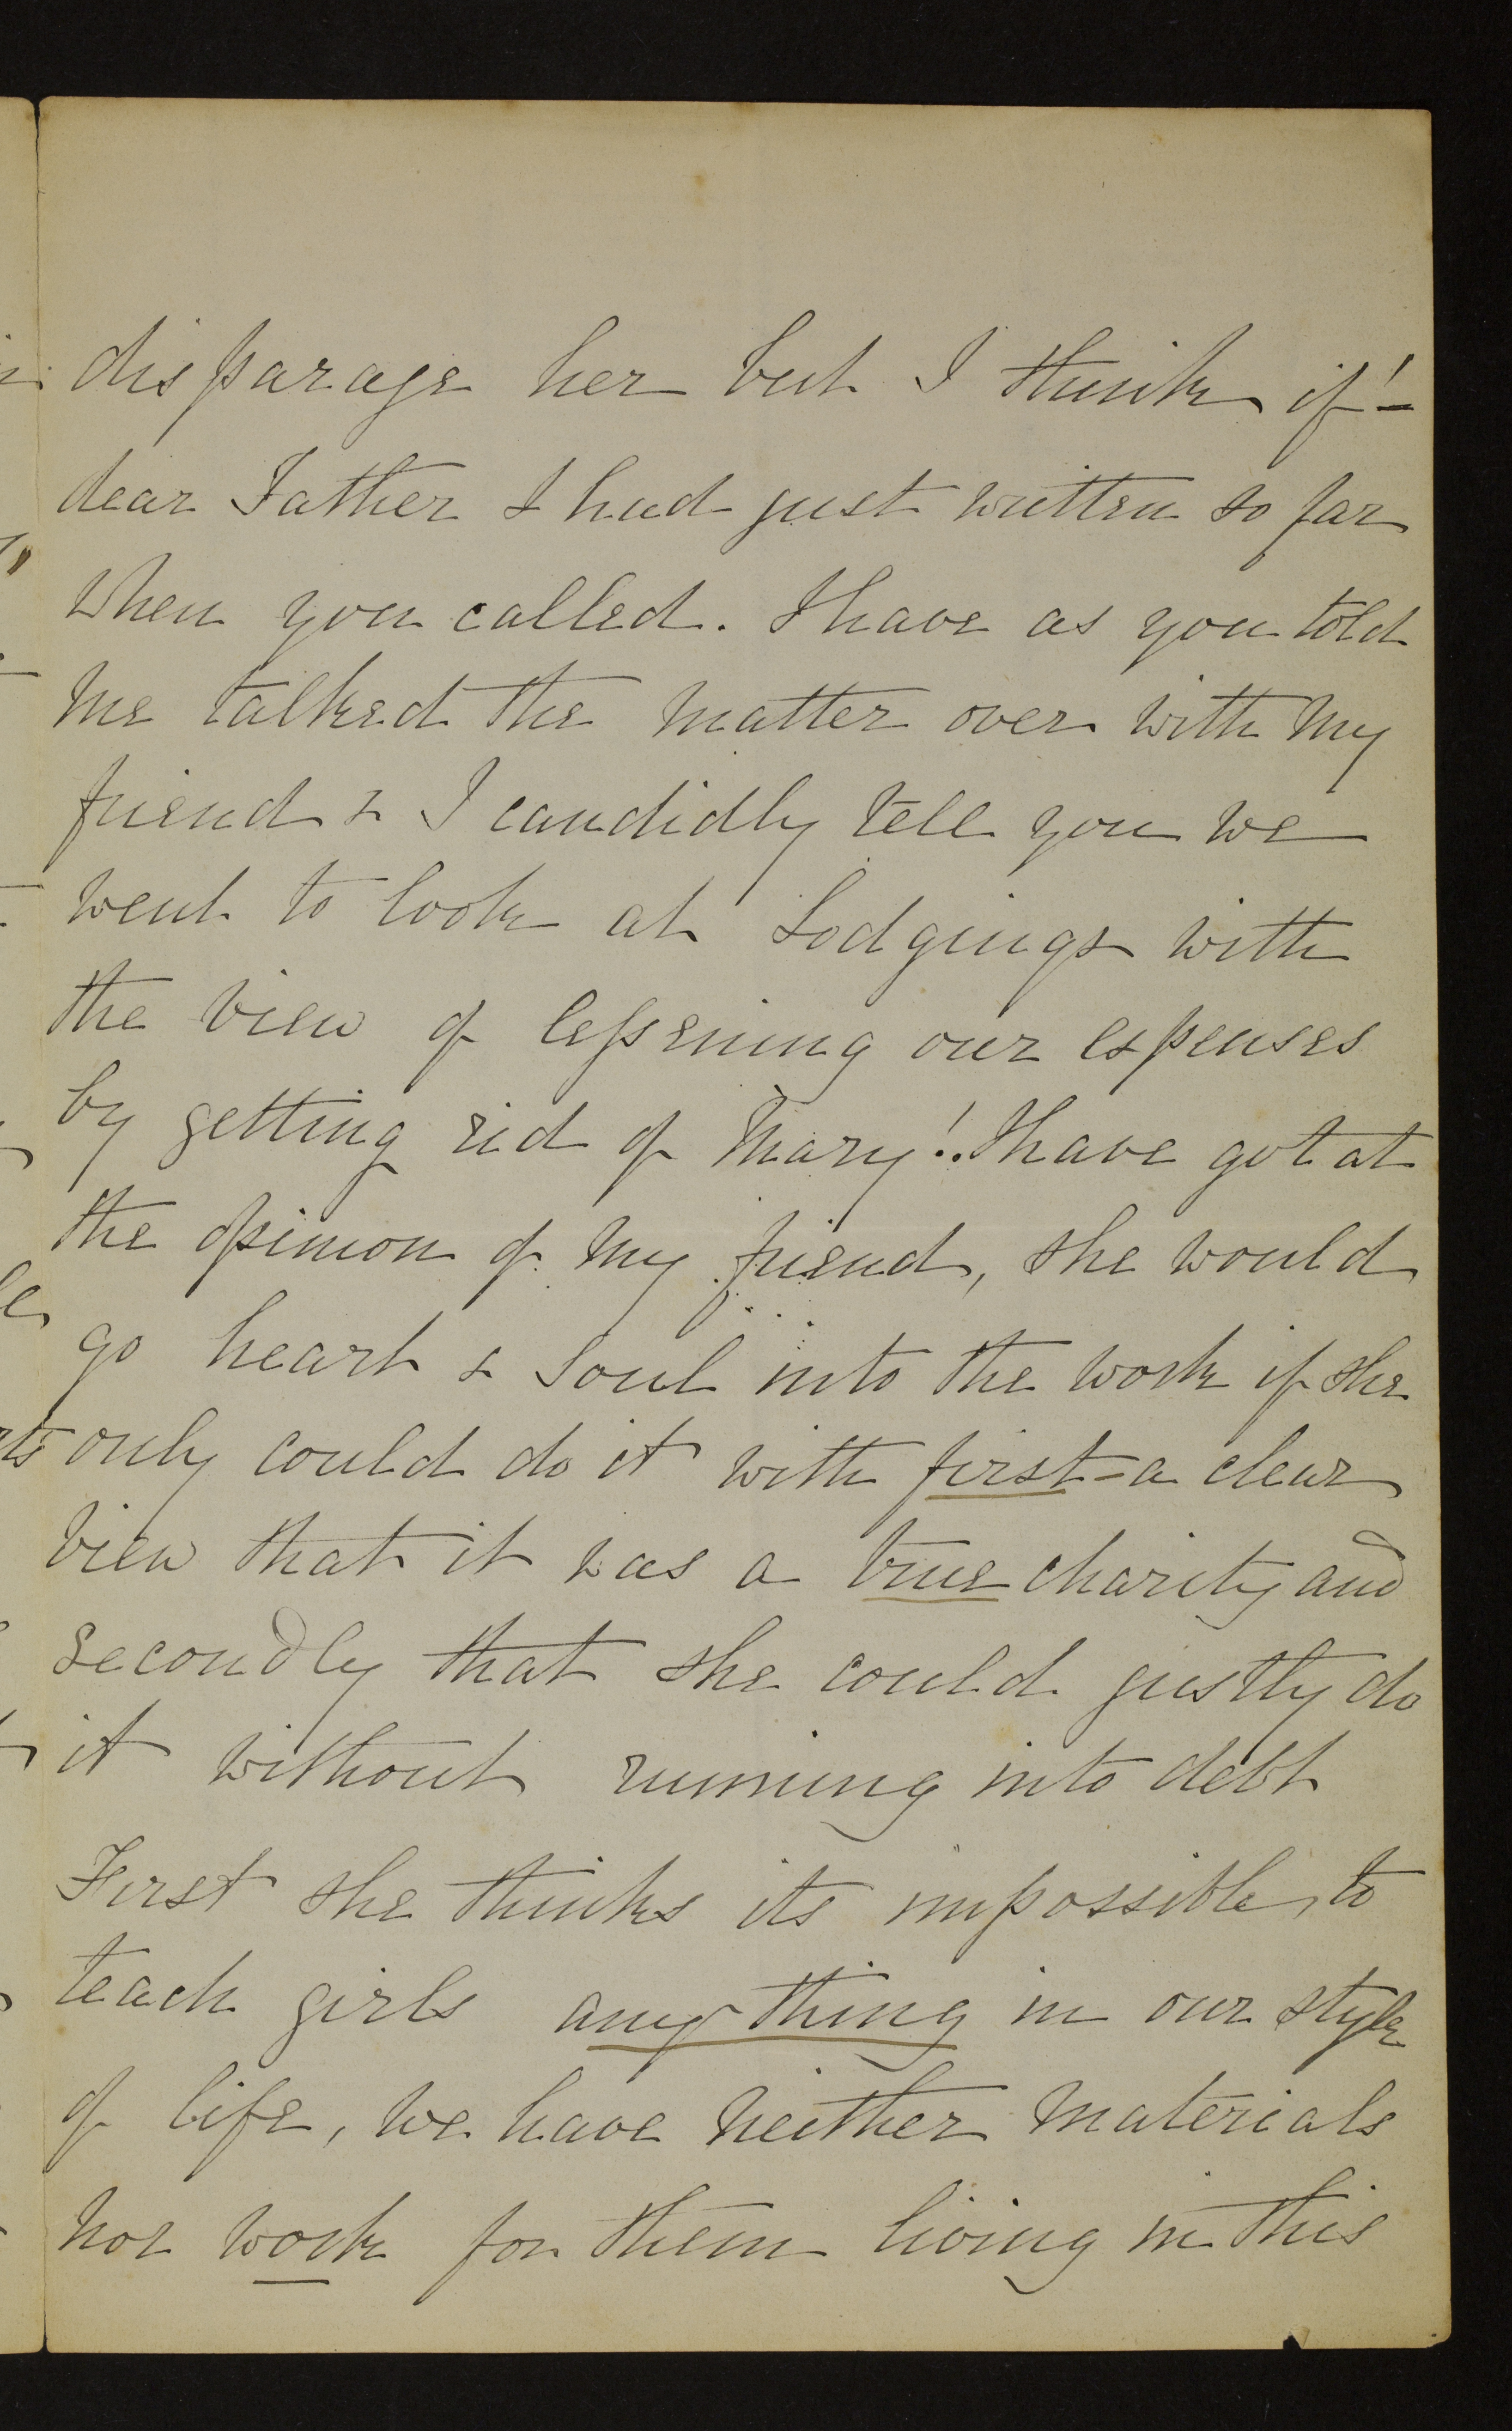 disparage her but I think if! –
dear Father I had just written so far
when you called. I have as you told
me talked the matter over with my
friend & I candidly tell you we
went to look at Lodgings with
the view of lessening our expenses
by getting rid of Mary!. I have got at
the opinion of my friend, she would
go heart & soul into the work if she
only could do it with first = a clear
view that it was a true charity and
secondly that she could justly do
it without running into debt
First she thinks its impossible, to
teach girls anything in our style
of life, we have neither materials
nor work for them living in this